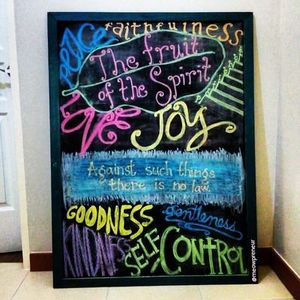 faithfulness
PEACE
The fruit
of the Spirit
patience
LOVE
JOY
Against such things
there is no law.
GOODNESS
gentleness
KINDNESS
SELF
CONTROL
@meowpreneur